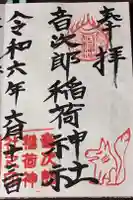 奉拝
音次郎稲荷神社
令和六年六月十二日
音次郎
稲荷神